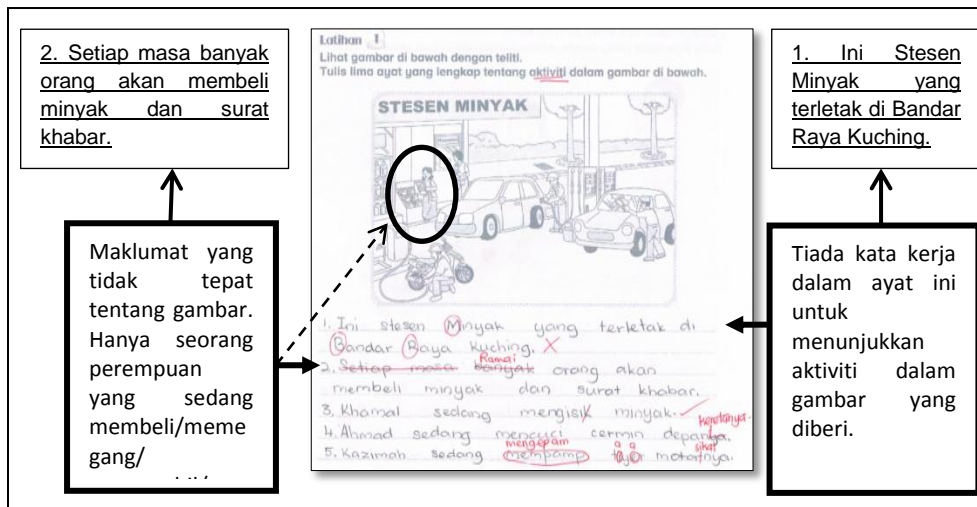 2. Setiap masa banyak
orang akan membeli
minyak dan surat
khabar.
Maklumat yang
tidak tepat
tentang gambar.
Hanya seorang
perempuan
yang sedang
membeli/meme
gang/
Latihan 1
Lihat gambar di bawah dengan teliti.
Tulis lima ayat yang lengkap tentang aktiviti dalam gambar di bawah.
STESEN MINYAK
1. Ini stesen Minyak yang terletak di
Bandar Raya Kuching. X
Ramai
2. Setiap masa banyak orang akan
membeli minyak dan surat khabar.
3. Khamal sedang mengisik minyak.
keretanya.
4. Ahmad sedang mencuci cermin depanya.
mengepam
5. Kazimah sedang mempamp motornya.
1. Ini Stesen
Minyak yang
terletak di Bandar
Raya Kuching.
Tiada kata kerja
dalam ayat ini
untuk
menunjukkan
aktiviti dalam
gambar yang
diberi.